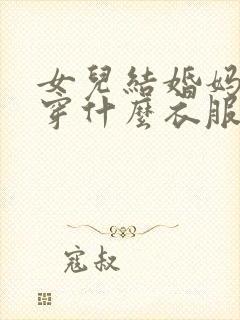 女兒結婚媽
穿什麼衣服
寇叔